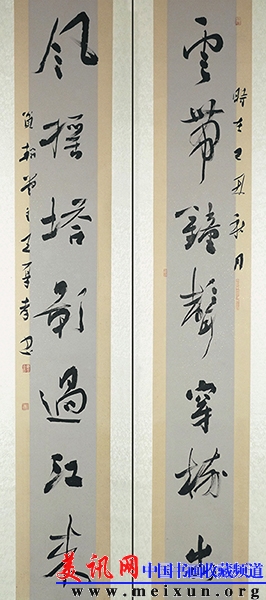 雲帶鐘聲穿林出
時在己丑秋月
風搖塔影過江來
美讯网
中国书画收藏频道
www.meixun.org